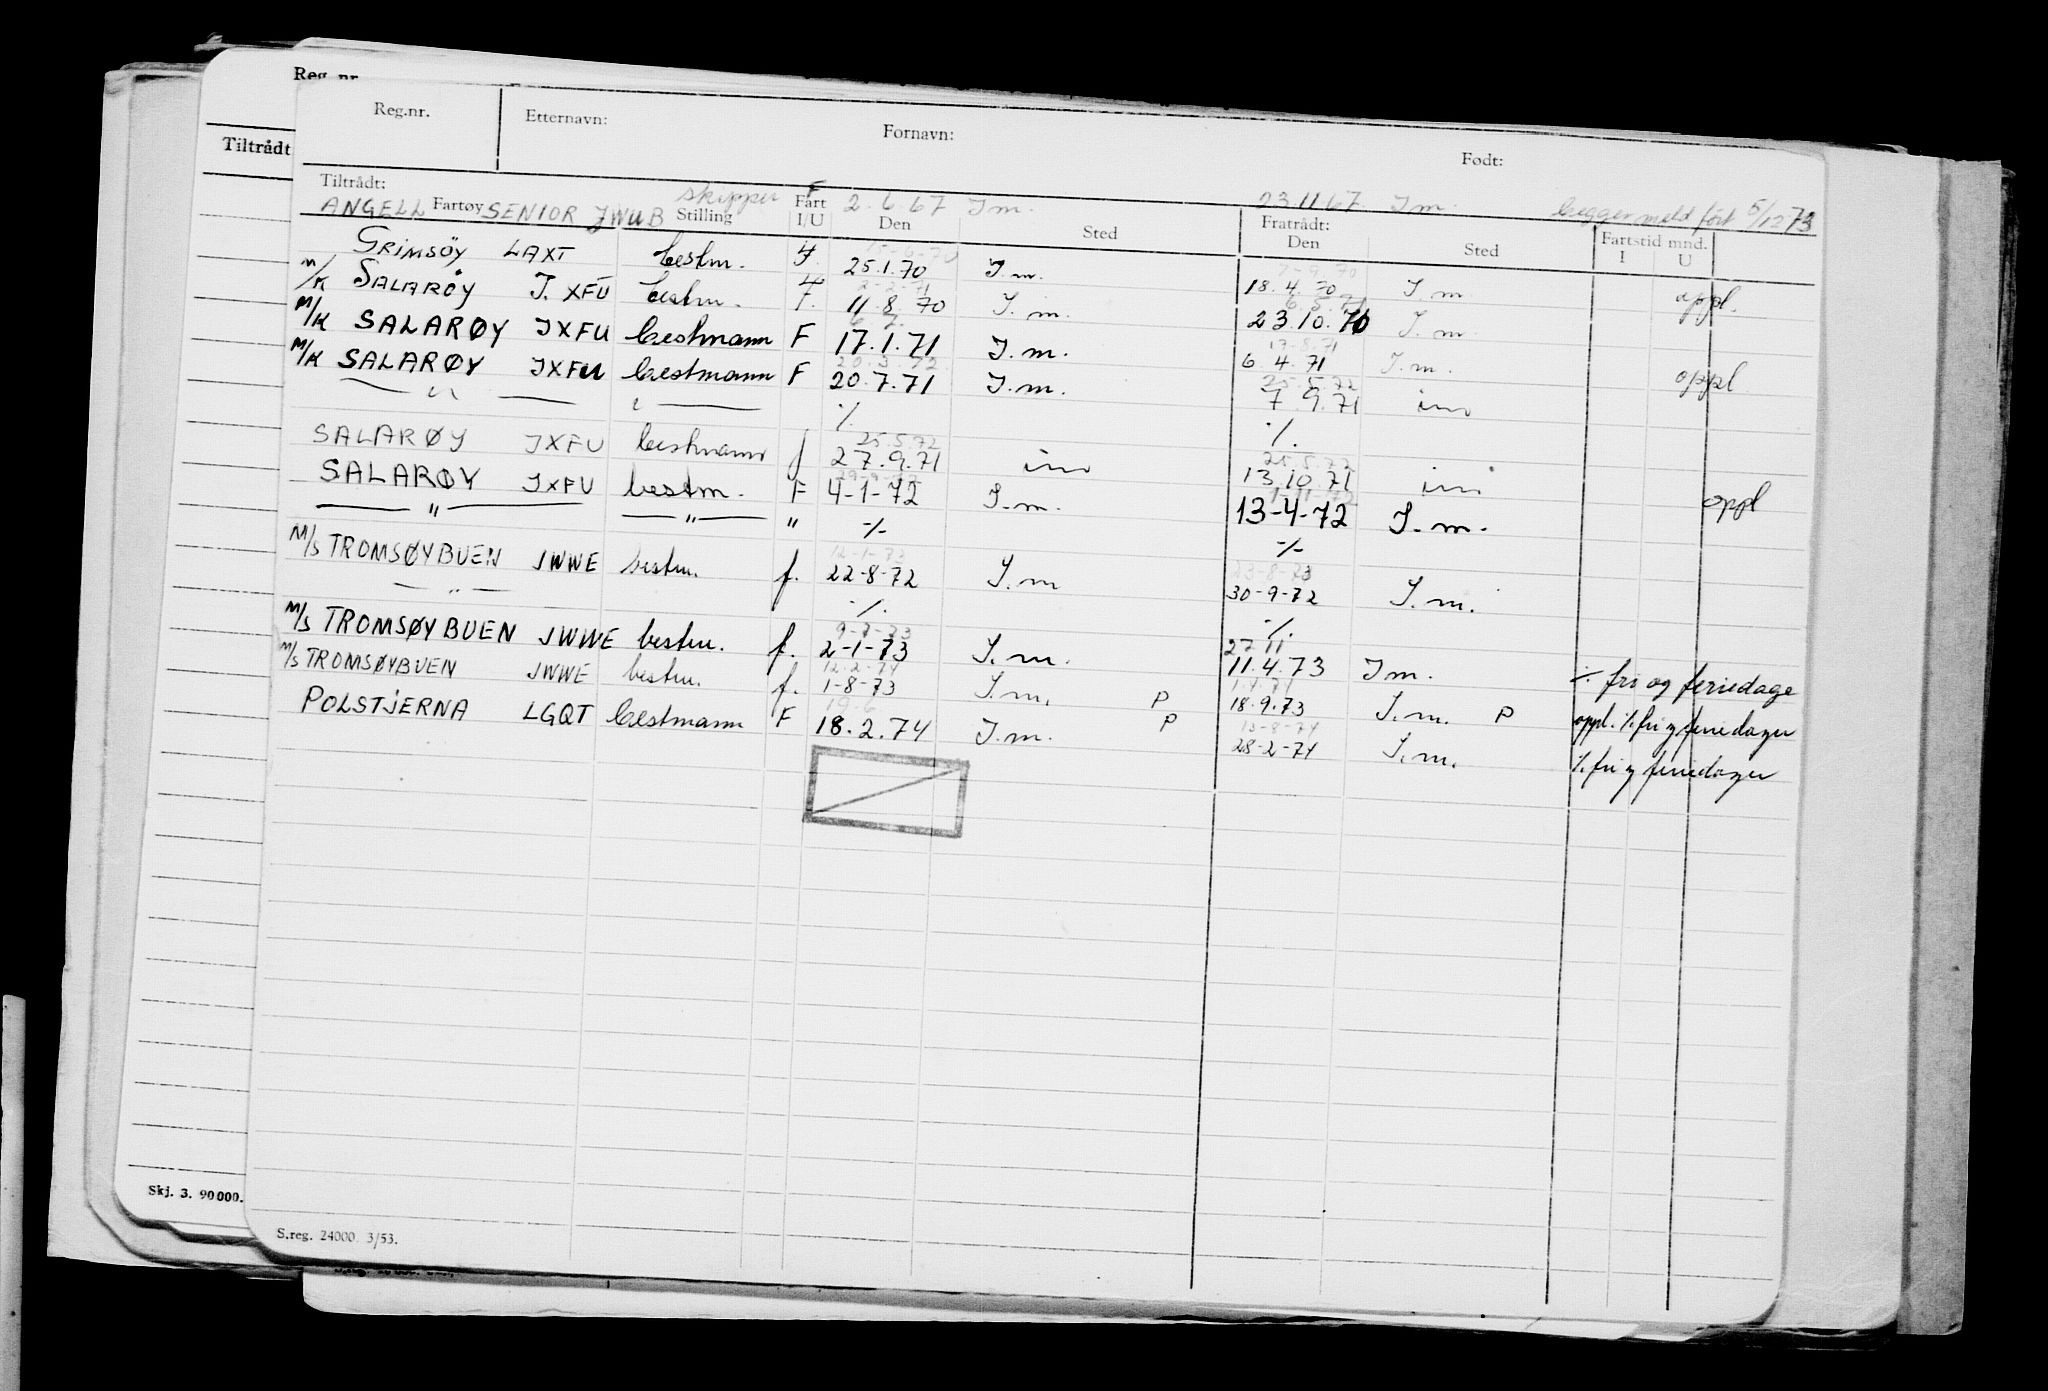 Reg. nr.
Tiltrådt
Reg.nr. Etternavn: Fornavn: Født:
Tiltrådt:
ANGELL SENIOR JWUB skipper F 2-6-67 I m. 23.11.67. I m. begge meld ført 5/12 73
Fartøy Stilling Fart I/U Den Sted Fratrådt: Den Sted Fartstid mnd. I U
GRIMSÖY LAXT bestm. F. 25.1.70 I.m. 18.4.70 I.m. oppl.
M/K SALARØY J.XFU bestm. F. 11.8.70 I.m. 23.10.70 I.m
M/K SALARØY JXFU bestmann F 17.1.71 I.m. 6.4.71 I.m. oppl
M/K SALARØY JXFU bestmann F 20.7.71 I.m. 7.9.71 im
— " — — " — ./. ./.
SALARØY JXFU bestmann f 27.9.71 im 13.10.71 im oppl
SALARØY JXFU bestm. F 4-1-72 I.m. 13-4-72 I.m.
— " — — " — " -/- -/-
M/S TROMSØYBUEN JWWE bestm. f. 22-8-72 I.m 30-9-72 I.m.
— " — ./. ./.
M/S TROMSØYBUEN JWWE bestm. f. 2-1-73 I.m. 11.4.73 I m. ./. fri og feriedage
M/S TROMSØYBUEN JWWE bestm. f. 1-8-73 I.m. P 18.9.73 I.m. P oppl. ./. fri og feriedager
POLSTJERNA LGQT bestmann F 18.2.74 I.m. P 28-2-74 I.m. ./. fri og feriedager
Skj. 3. 90000.
S.reg. 24000 3/53.